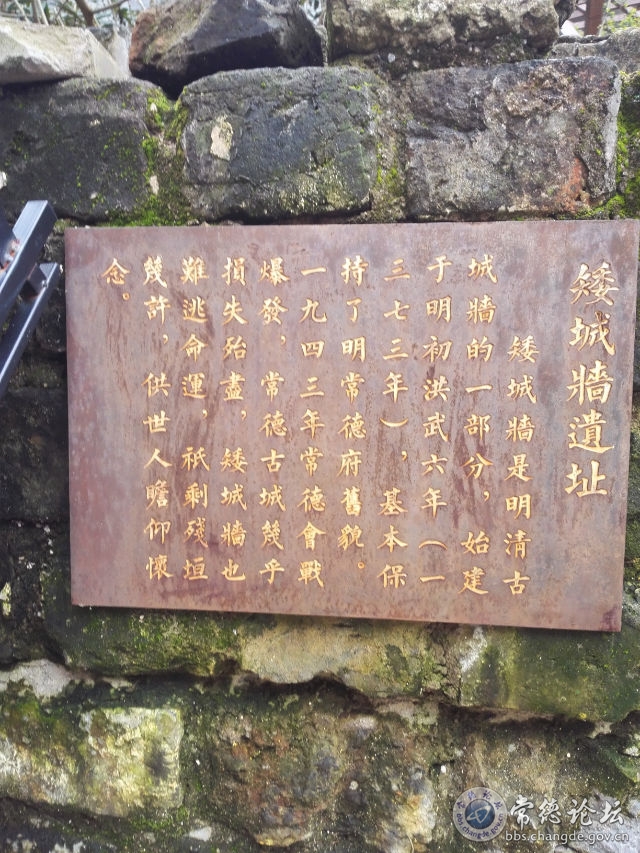 矮城牆遺址
矮城牆是明清古
城牆的一部分，始建
于明初洪武六年（一
三七三年），基本保
持了明常德府舊貌。
一九四三年常德會戰
爆發，常德古城幾乎
損失殆盡，矮城牆也
難逃命運，祇剩殘垣
幾許，供世人瞻仰懷
念。
常德论坛
bbs.changde.gov.cn